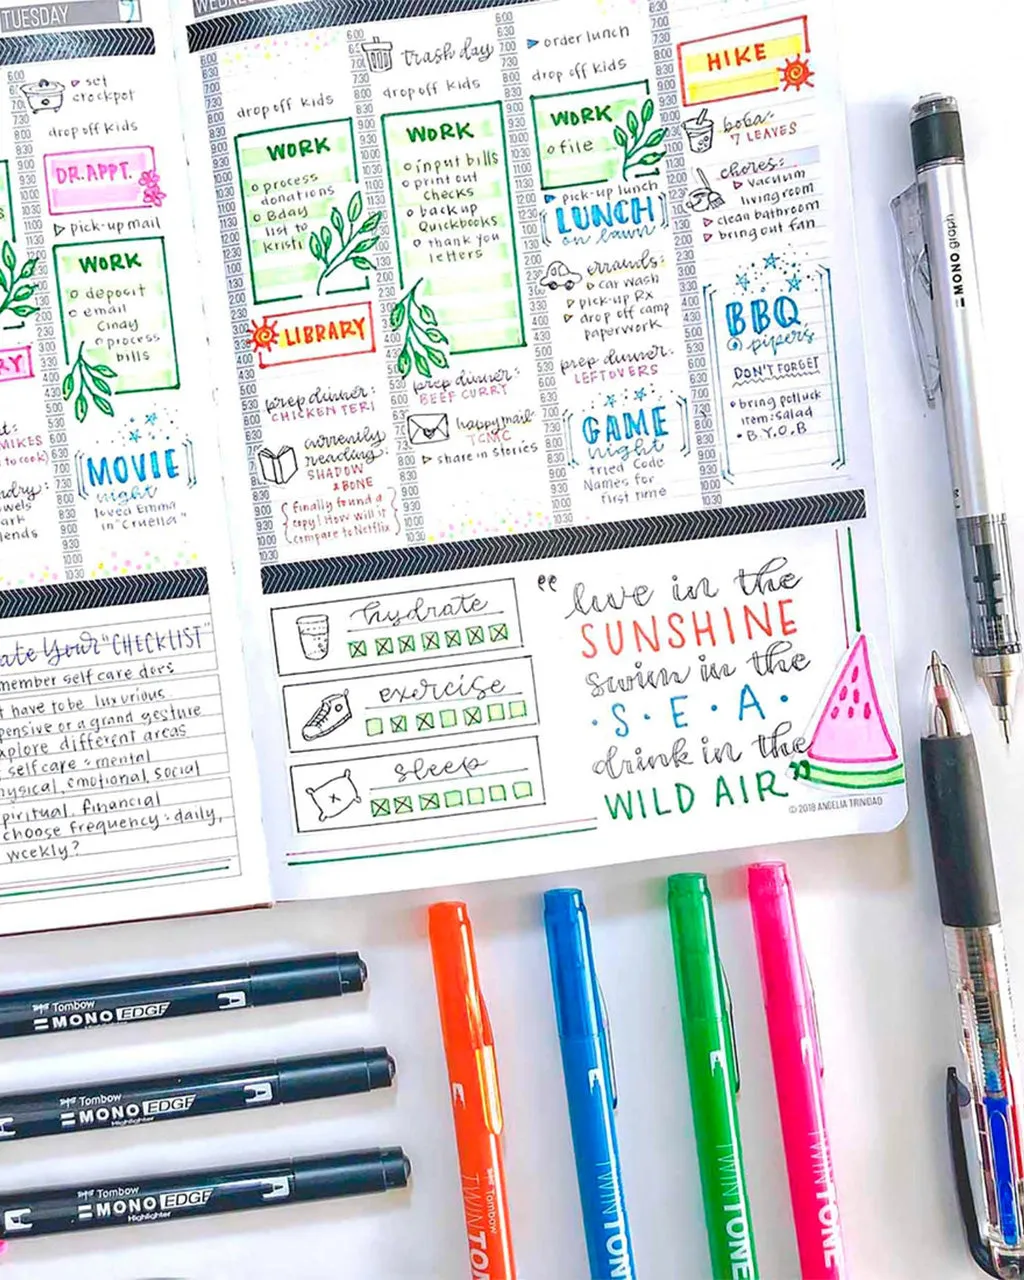 TUESDAY
set
crockpot
drop off kids
DR. APPT.
pick-up mail
WORK
deposit
email
Cindy
process
bills
MOVIE
night
loved Emma
in "Cruella"
MIKES
to cook)
"CHECKLIST"
member self care does
t have to be luxurious.
pensive or a grand gesture
xplore different areas
self care: mental
hysical, emotional, social
piritual, financial
choose frequency: daily,
weekly?
drop off kids
WORK
process
donations
Bday
list to
Kristi
LIBRARY
prep dinner:
CHICKEN TERI
currently
reading:
SHADOW
& BONE
Finally found a
copy! How will it
compare to Netflix
trash day
drop off kids
WORK
input bills
print out
checks
backup
Quickbooks
thank you
letters
prep dinner:
BEEF CURRY
happy mail:
TCMC
share in stories
order lunch
drop off kids
WORK
file
pick-up lunch
LUNCH
on lawn
errands:
car wash
pick-up Rx
drop off camp
paperwork
prep dinner:
LEFTOVERS
GAME
night
tried Code
Names for
first time
HIKE
boba:
7 LEAVES
chores:
vacuum
living room
clean bathroom
bring out fan
BBQ
@ pipers
DON'T FORGET
• bring potluck
item: salad
• B.Y.O.B
hydrate
exercise
sleep
"live in the
SUNSHINE
swim in the
·S·E·A·
drink in the
WILD AIR"
© 2018 ANGELIA TRINIDAD
MONO graph
Tombow
MONO EDGE
Tombow
MONO EDGE
Highlighter
Tombow
MONO EDGE
Highlighter
Tombow
TWINTO
TWINTONE
TWINTONE
TWINTONE